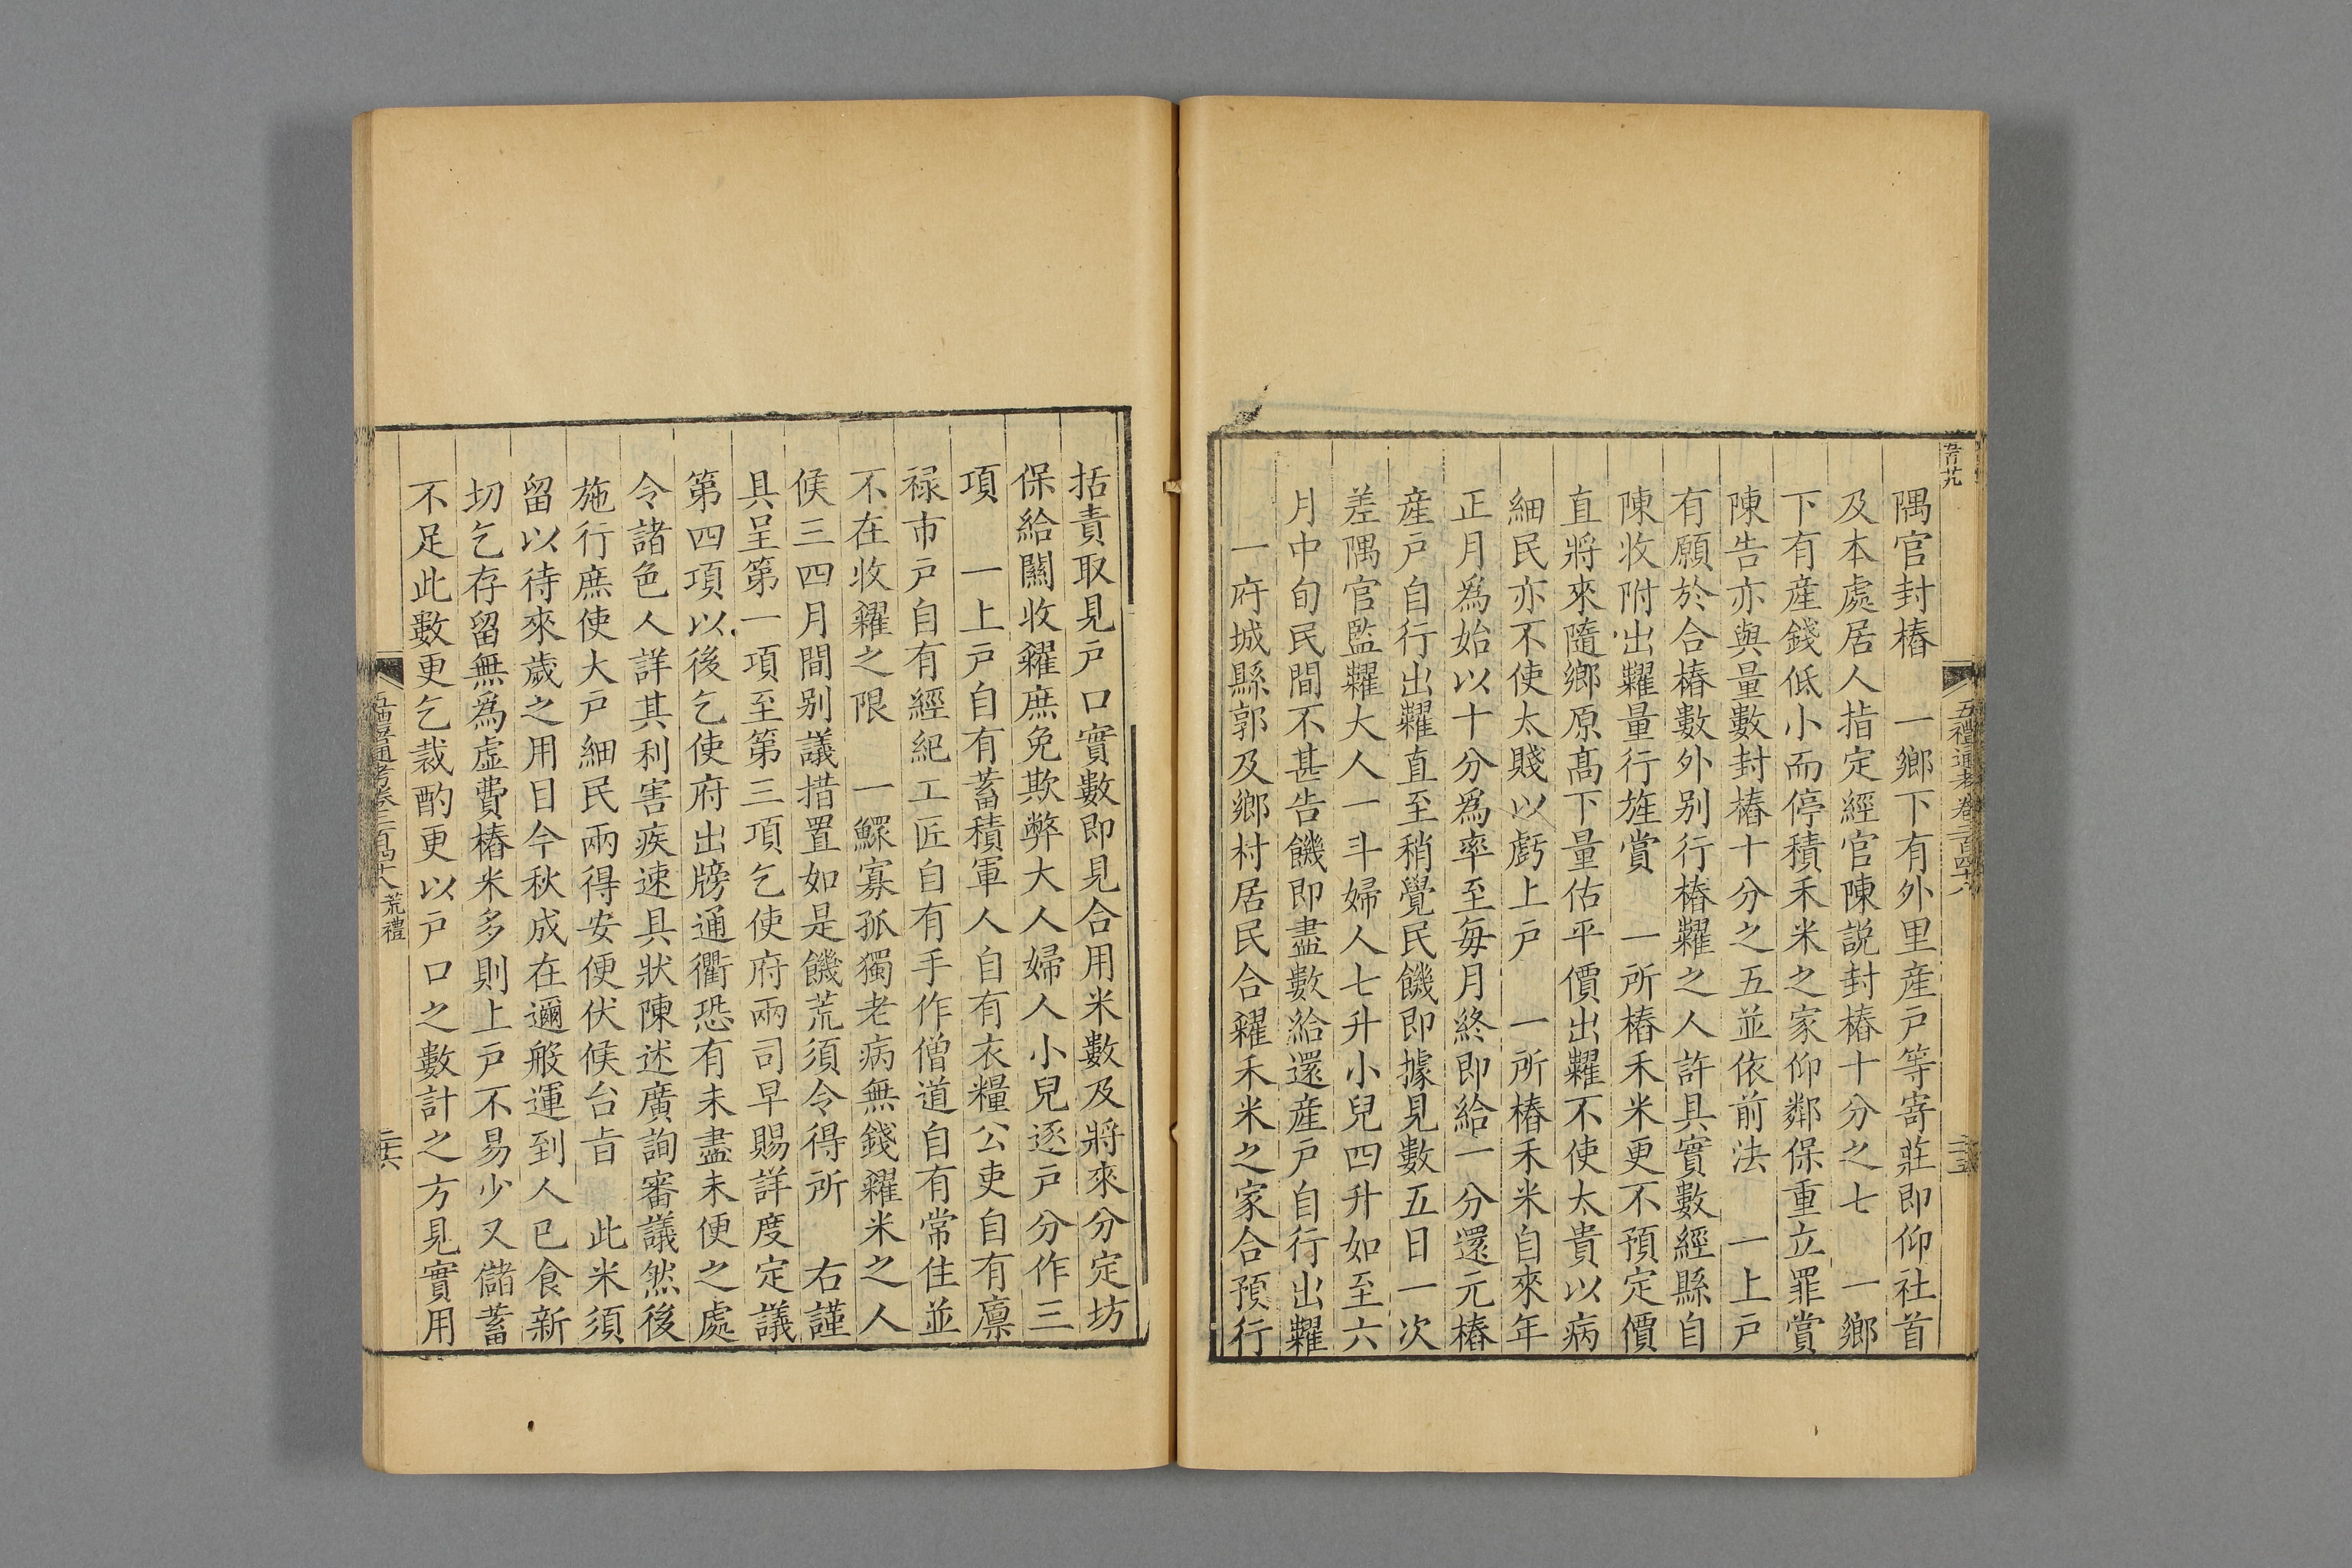 五禮通考卷二百四十八
二十五
隅官封樁　一鄉下有外里産戸等寄莊即仰社首
及本處居人指定經官陳説封樁十分之七　一鄉
下有産錢低小而停積禾米之家仰鄰保重立罪賞
陳告亦與量數封樁十分之五並依前法　一上戸
有願於合樁數外别行樁糶之人許具實數經縣自
陳收附出糶量行旌賞　一所樁禾米更不預定價
直將來隨鄉原髙下量估平價出糶不使太貴以病
細民亦不使太賤以虧上戸　一所樁禾米自來年
正月爲始以十分爲率至毎月終即給一分還元樁
産戸自行出糶直至稍覺民饑即據見數五日一次
差隅官監糶大人一斗婦人七升小兒四升如至六
月中旬民間不甚告饑即盡數給還産戸自行出糶
一府城縣郭及鄉村居民合糴禾米之家合預行
括責取見戸口實數即見合用米數及將來分定坊
保給關收糴庶免欺弊大人婦人小兒逐戸分作三
項　一上戸自有蓄積軍人自有衣糧公吏自有廪
禄市戸自有經紀工匠自有手作僧道自有常住並
不在收糴之限　一鰥寡孤獨老病無錢糴米之人
候三四月間别議措置如是饑荒須令得所　右謹
具呈第一項至第三項乞使府兩司早賜詳度定議
第四項以後乞使府出牓通衢恐有未盡未便之處
令諸色人詳其利害疾速具狀陳述廣詢審議然後
施行庶使大戸細民兩得安便伏候台㫖　此米須
留以待來歲之用目今秋成在邇般運到人已食新
切乞存留無爲虚費樁米多則上戸不易少又儲蓄
不足此數更乞裁酌更以戸口之數計之方見實用
五禮通考卷二百四十八　荒禮
二十六